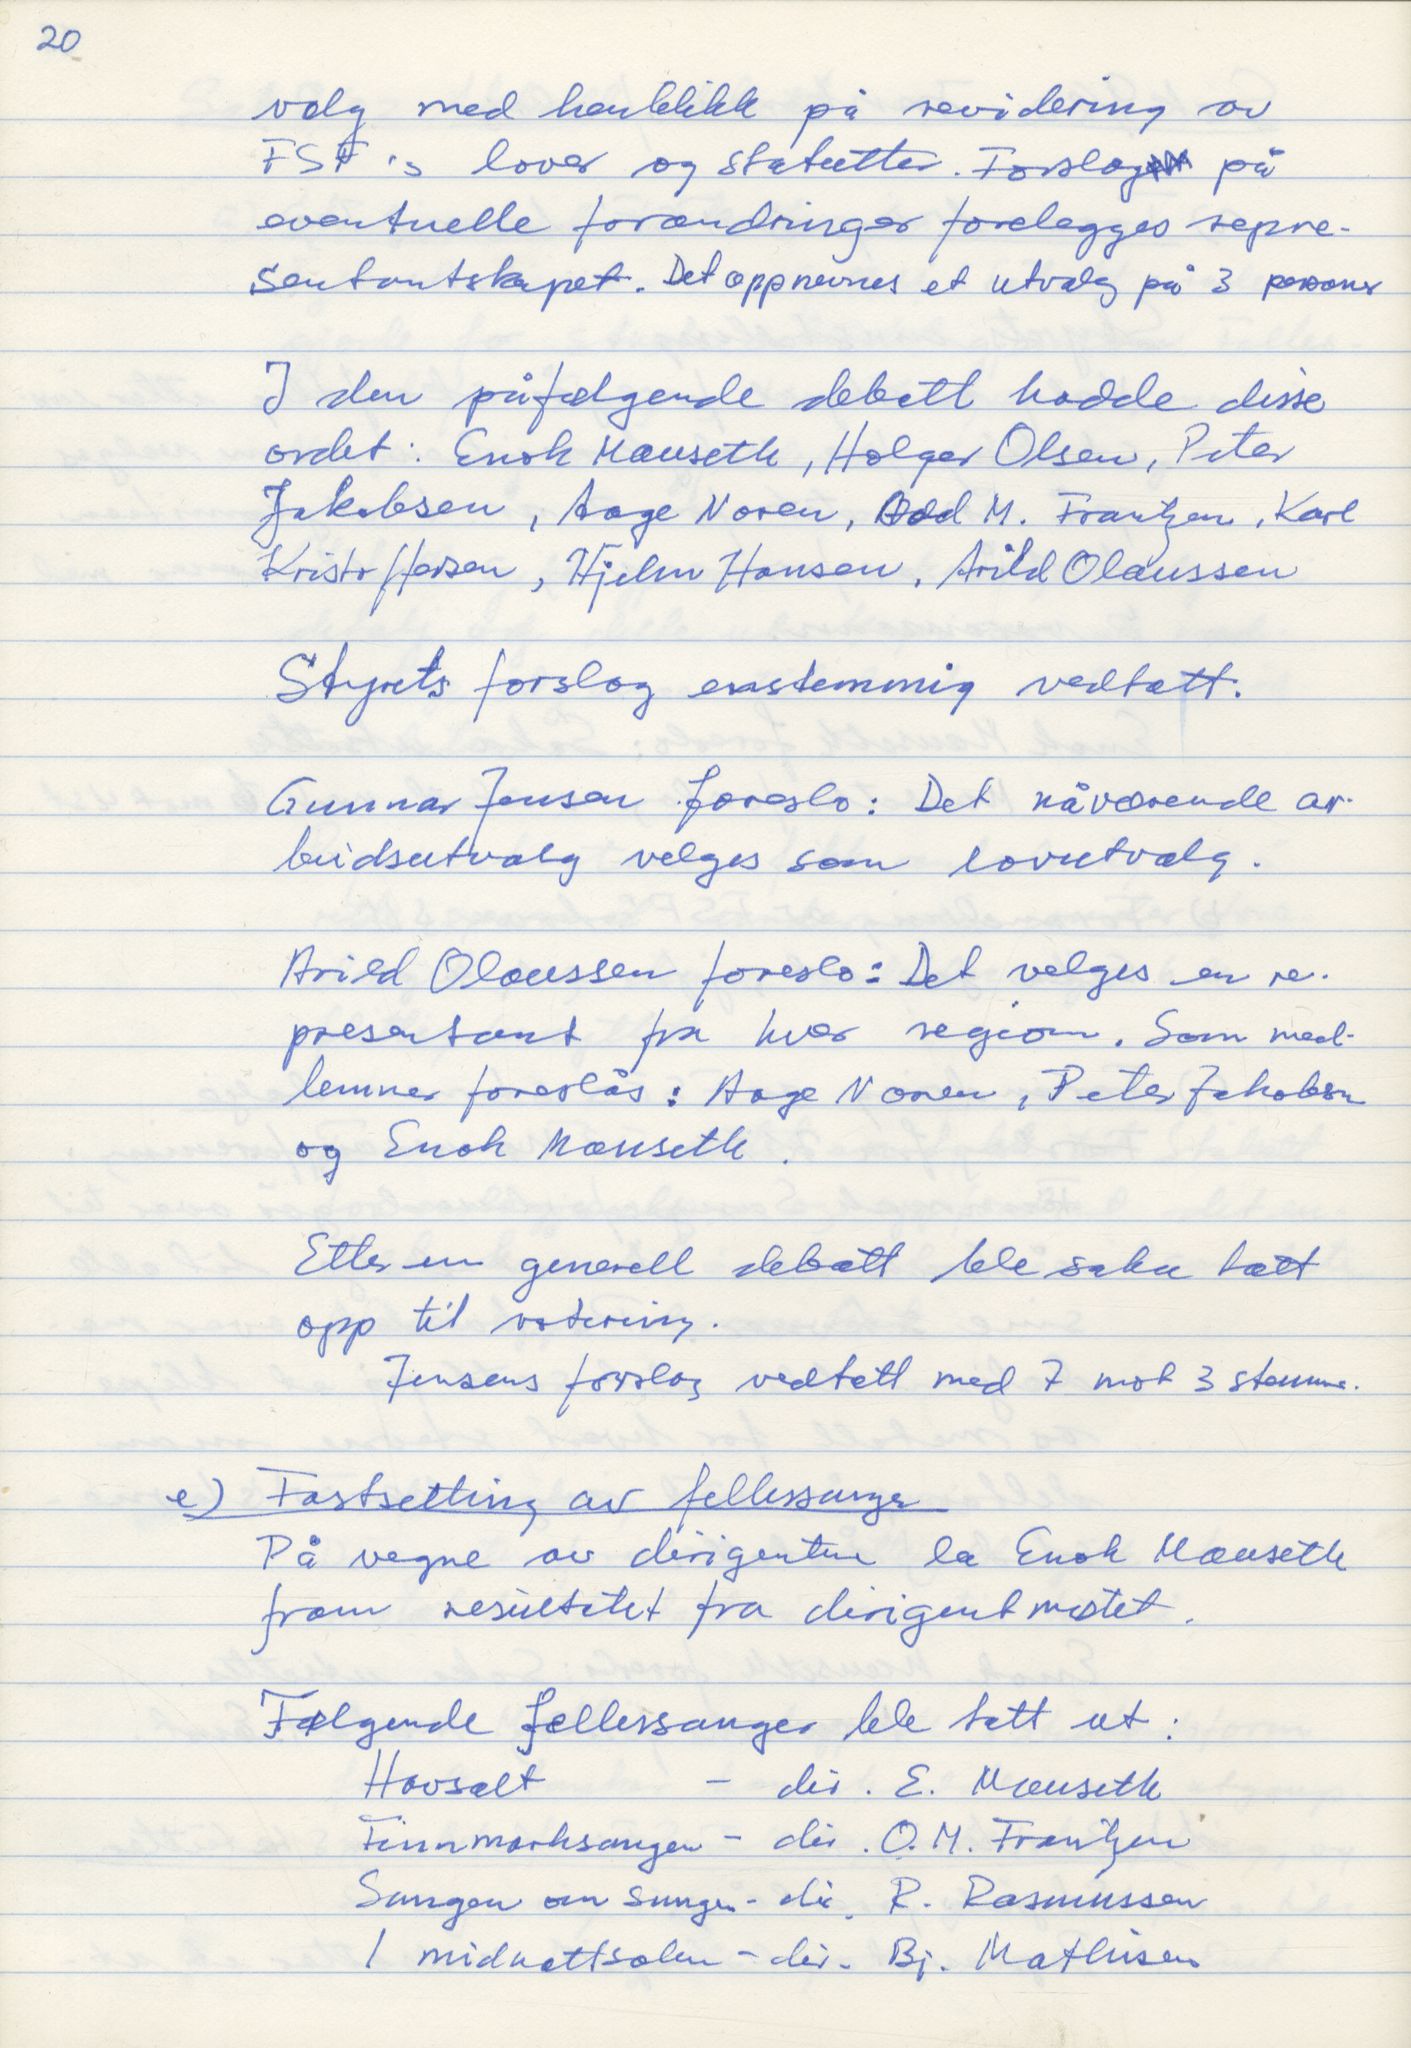 20
valg med henblikk på revidering av
FSF's lover og statutter. Forslag på
eventuelle forandringer forelegges repre-
sentantskapet. Det oppnevnes et utvalg på 3 personer
I den påfølgende debatt hadde disse
ordet: Enok Mauseth, Holger Olsen, Peter
Jakobsen, Aage Noren, Odd M. Frantzen, Karl
Kristoffersen, Hjelm Hansen, Arild Olaussen
Styrets forslag enstemmig vedtatt.
Gunnar Jensen foreslo: Det nåværende ar-
beidsutvalg velges som lovutvalg.
Arild Olaussen foreslo: Det velges en re-
presentant fra hver region. Som med-
lemmer foreslås: Aage Noren, Peter Jakobsen
og Enok Mauseth.
Etter en generell debatt ble saken tatt
opp til votering.
Jensens forslag vedtatt med 7 mot 3 stemmer.
e) Fastsetting av fellessanger
På vegne av dirigentene la Enok Mauseth
fram resultatet fra dirigentmøtet.
Følgende fellessanger ble tatt ut:
Havsalt - dir. E. Mauseth
Finnmarksangen - dir. O.M. Frantzen
Sangen om sangen - dir. R. Rasmussen
I midnattsolen - dir. Bj. Mathisen